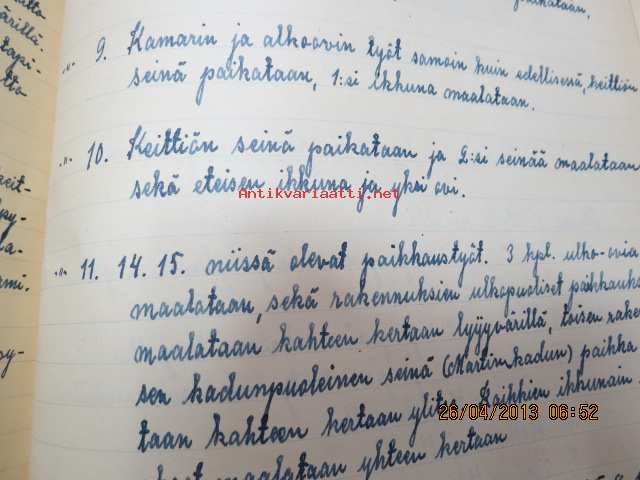 paikataan,
-"- 9. Kamarin ja alkoovin työt samoin kuin edellisenä, keittiön
seinä paikataan, 1:si ikkuna maalataan.
-"- 10. Keittiön seinä paikataan ja 2:si seinää maalataan
sekä eteisen ikkuna ja yksi ovi.
Antikvariaatti.net
-"- 11. 14. 15. niissä olevat paikkaustyöt. 3 kpl. ulko-ovia
maalataan, sekä rakennuksien ulkopuoliset paikkauks
maalataan kahteen kertaan lyijyvärillä, toisen raken
sen kadunpuoleinen seinä (Martinkadun) paikka
taan kahteen kertaan ylitse. Kaikkien ikkunain
maalataan yhteen kertaan
26/04/2013 06:52